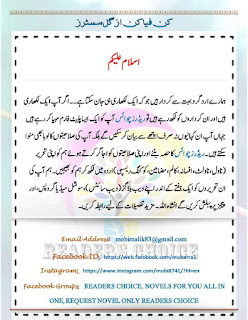 کن فیاکن از گل مسٹرز
اسلام علیکم
ہمارے ارد گرد بہت سے کردار ہیں جو کہ ایک لکھاری ہی جان سکتا ہے۔۔ اگر آپ ایک لکھاری
ہیں اور ان کرداروں کو لکھ رہے ہیں تو ریڈرز چوائس آپ کو ایک ایسا پلیٹ فارم مہیا کر رہے ہیں
جہاں آپ ان کہانیوں کو نہ صرف اچھے سے بیان کر سکیں گے بلکہ آپ کی صلاحیتوں کا لوہا بھی منوا
سکتے ہیں۔ ریڈرز چوائس کا حصہ بنئے اور اپنی صلاحیتوں کو اجاگر کرتے ہوئے ہم کو اپنی تحریر
(ناول، ناولٹ، افسانہ، کالم، مضامین، کوکنگ ریسیپی) اردو میں لکھ کر ہم کو بھیجیں۔ ہم آپ کی
ان تحریروں کو ایک ہفتے کے اندر اپنے ویب بلاگ (ویب سائٹس)، سوشل میڈیا گروپس، اور
پیجز پر پبلش کریں گے انشاءاللہ۔ مزید تفصیلات کے لیے رابطہ کریں۔
READERS CHOICE
Email Address: mobimalik83@gmail.com
Facebook ID: https://web.facebook.com/mubarra1
Instagram: https://www.instagram.com/mobi8741/?hl=en
Facebook Group: READERS CHOICE, NOVELS FOR YOU ALL IN
ONE, REQUEST NOVEL ONLY READERS CHOICE